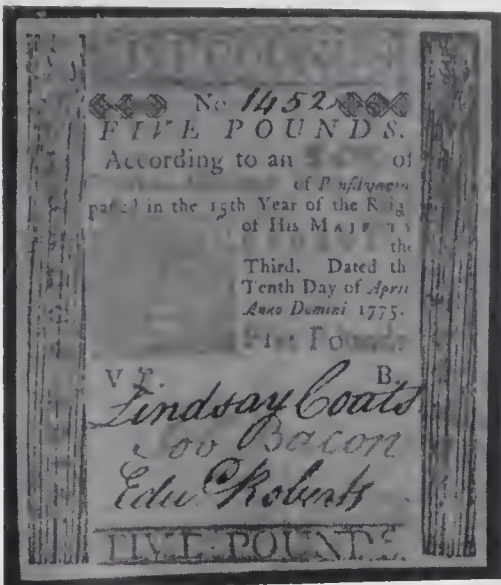 No 1452
FIVE POUNDS.
According to an of
of
in the 15th Year of the
of His
the
Third. Dated th
Tenth Day of April
Anno Domini 1775.
Five Pounds
V P. B.
Lindsay Coats
Bacon
Edwd Roberts
FIVE POUNDS.